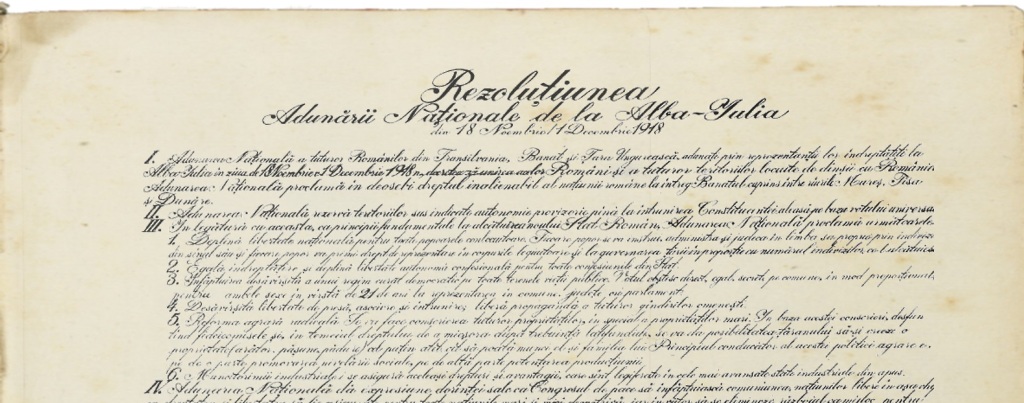 Rezoluțiunea
Adunării Naționale de la Alba-Iulia
din 18 Noembrie/1 Decembrie 1918
I. Adunarea Națională a tuturor Românilor din Transilvania, Banat și Țara Ungurească, adunați prin reprezentanții lor îndreptățiți la
Alba-Iulia în ziua de 18 Noembrie/1 Decembrie 1918, decretează unirea acelor Români și a tuturor teritoriilor locuite de dînșii cu România.
Adunarea Națională proclamă în deosebi dreptul inalienabil al națiunii române la întreg Banatul cuprins între rîurile Mureș, Tisa
și Dunăre.
II. Adunarea Națională rezervă teritoriilor sus indicate autonomie provizorie pînă la întrunirea Constituantei aleasă pe baza votului universal.
III. În legătură cu aceasta, ca principii fundamentale la alcătuirea noului Stat Român, Adunarea Națională proclamă următoarele:
1. Deplină libertate națională pentru toate popoarele conlocuitoare. Fiecare popor se va instrui, administra și judeca în limba sa proprie prin indivizi
din sînul său și fiecare popor va primi drept de reprezentare în corpurile legiuitoare și la guvernarea țării în proporție cu numărul indivizilor ce-l alcătuiesc.
2. Egală îndreptățire și deplină libertate autonomă confesională pentru toate confesiunile din Stat.
3. Înfăptuirea desăvîrșită a unui regim curat democratic pe toate terenele vieții publice. Votul obștesc, direct, egal, secret, pe comune, în mod proporțional,
pentru ambele sexe, în vîrstă de 21 de ani la reprezentarea în comune, județe ori parlament.
4. Desăvîrșită libertate de presă, asociere și întrunire; liberă propagandă a tuturor gîndurilor omenești.
5. Reforma agrară radicală. Se va face conscrierea tuturor proprietăților, în special a proprietăților mari. În baza acestei conscrieri, desființ
înd fideicomisele și în temeiul dreptului de a micșora după trebuință latifundiile, se va da posibilitatea țăranului să-și creeze o
proprietate (arător, pășune, pădure) cel puțin atît cît să poată munci el și familia lui. Principiul conducător al acestei politice agrare e
de o parte promovarea nivelării sociale, pe de altă parte, potențarea producțiunii.
6. Muncitorimei industriale i se asigură aceleași drepturi și avantagii, care sînt legiferate în cele mai avansate state industriale din apus.
IV. Adunarea Națională dă expresiune dorinței sale, ca Congresul de pace să înfăptuiască comuniunea națiunilor libere în așa chip,